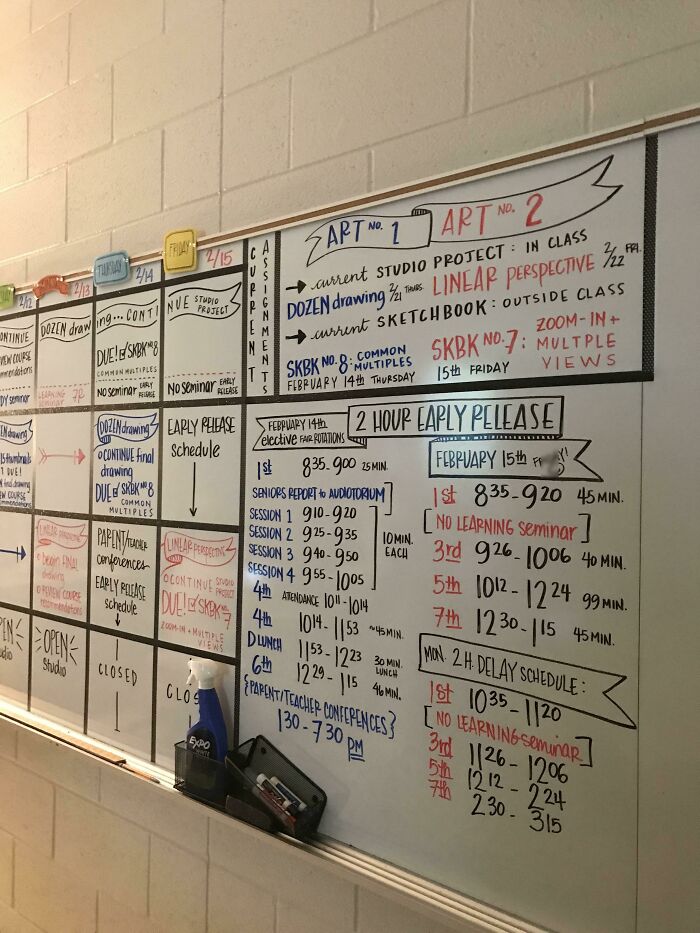 2/12
2/13
THURSDAY
2/14
FRIDAY
2/15
DOZEN draw
ing... CONTI
NUE STUDIO
PROJECT
DUE! SKBK NO. 8
COMMON
MULTIPLES
No seminar EARLY RELEASE
NO seminar EARLY RELEASE
DOZEN drawing
CONTINUE final
drawing
DUE SKBK NO. 8
COMMON
MULTIPLES
EARLY RELEASE
schedule
LINEAR PERSPECTIVE
begin FINAL
drawing
REVIEW COURSE
recommendations
PARENT/TEACHER
conferences
EARLY RELEASE
schedule
LINEAR PERSPECTIVE
CONTINUE STUDIO
PROJECT
DUE! SKBK NO. 7
ZOOM-IN + MULTIPLE
VIEWS
"OPEN"
Studio
CLOSED
EXPO
CURRENT
ASSIGNMENTS
ART NO. 1 ART NO. 2
→ current STUDIO PROJECT: IN CLASS
DOZEN drawing 2/21 THURS. LINEAR PERSPECTIVE 2/22 FRI.
→ current SKETCHBOOK: OUTSIDE CLASS
SKBK NO. 8: COMMON MULTIPLES
FEBRUARY 14th THURSDAY
SKBK NO. 7: ZOOM-IN + MULTPLE VIEWS
15th FRIDAY
2 HOUR EARLY RELEASE
FEBRUARY 14th
elective FAIR ROTATIONS
1st 835-900 25 MIN.
SENIORS REPORT to AUDIOTORIUM]
SESSION 1 910-920
SESSION 2 925-935
SESSION 3 940-950
SESSION 4 955-1005
10 MIN. EACH
4th ATTENDANCE 1011-1014
4th 1014-1153 ~45 MIN.
D LUNCH 1153-1223 30 MIN. LUNCH
6th 1229-115 46 MIN.
{PARENT/TEACHER CONFERENCES}
130-730 PM
FEBRUARY 15th
1st 835-920 45 MIN.
[NO LEARNING seminar]
3rd 926-1006 40 MIN.
5th 1012-1224 99 MIN.
7th 1230-115 45 MIN.
MON. 2 H. DELAY SCHEDULE:
1st 1035-1120
[NO LEARNING seminar]
3rd 1126-1206
5th 1212-224
7th 230-315